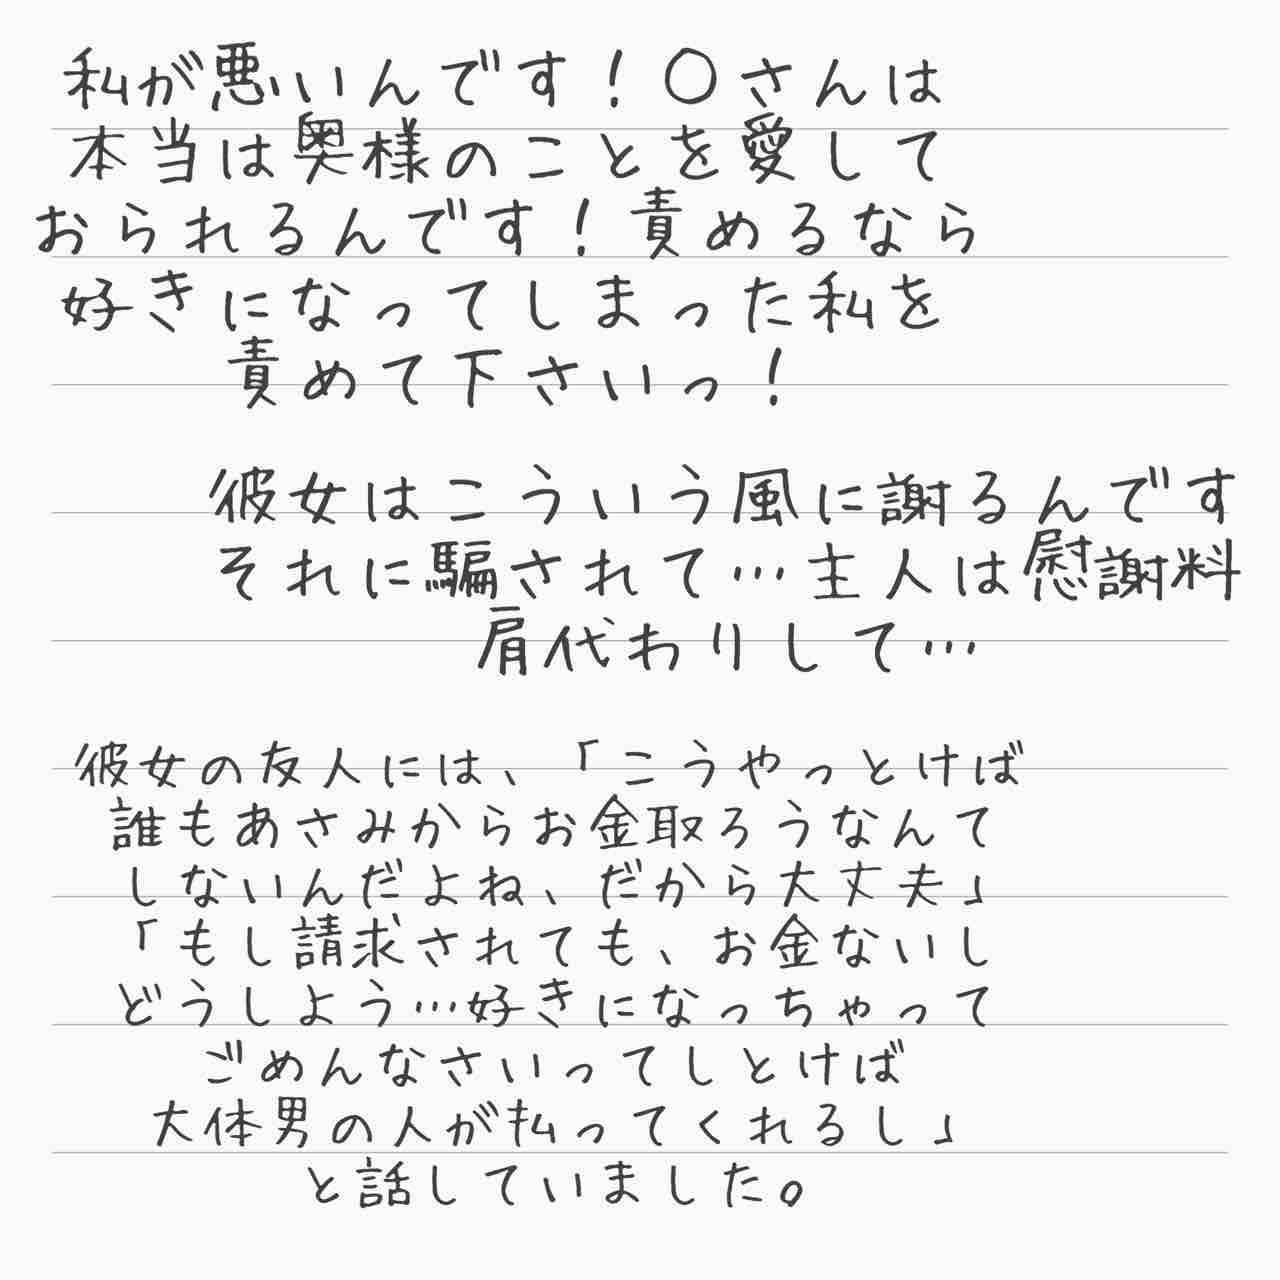 私が悪いんです！〇さんは
本当は奥様のことを愛して
おられるんです！責めるなら
好きになってしまった私を
責めて下さいっ！
彼女はこういう風に謝るんです
それに騙されて…主人は慰謝料
肩代わりして…
彼女の友人には、「こうやっとけば
誰もあさみからお金取ろうなんて
しないんだよね、だから大丈夫」
「もし請求されても、お金ないし
どうしよう…好きになっちゃって
ごめんなさいってしとけば
大体男の人が払ってくれるし」
と話していました。